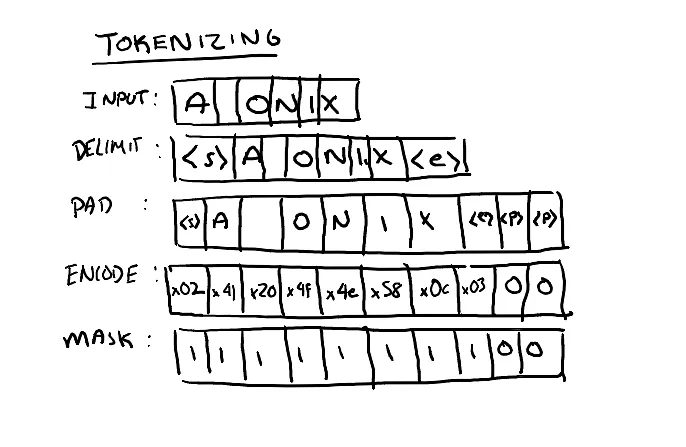 TOKENIZING
INPUT: A O N I X
DELIMIT: <s> A O N I X <e>
PAD: <s> A O N I X <e> <p> <p>
ENCODE: x02 x41 x20 x4f x4e x58 x0c x03 0 0
MASK: 1 1 1 1 1 1 1 1 0 0